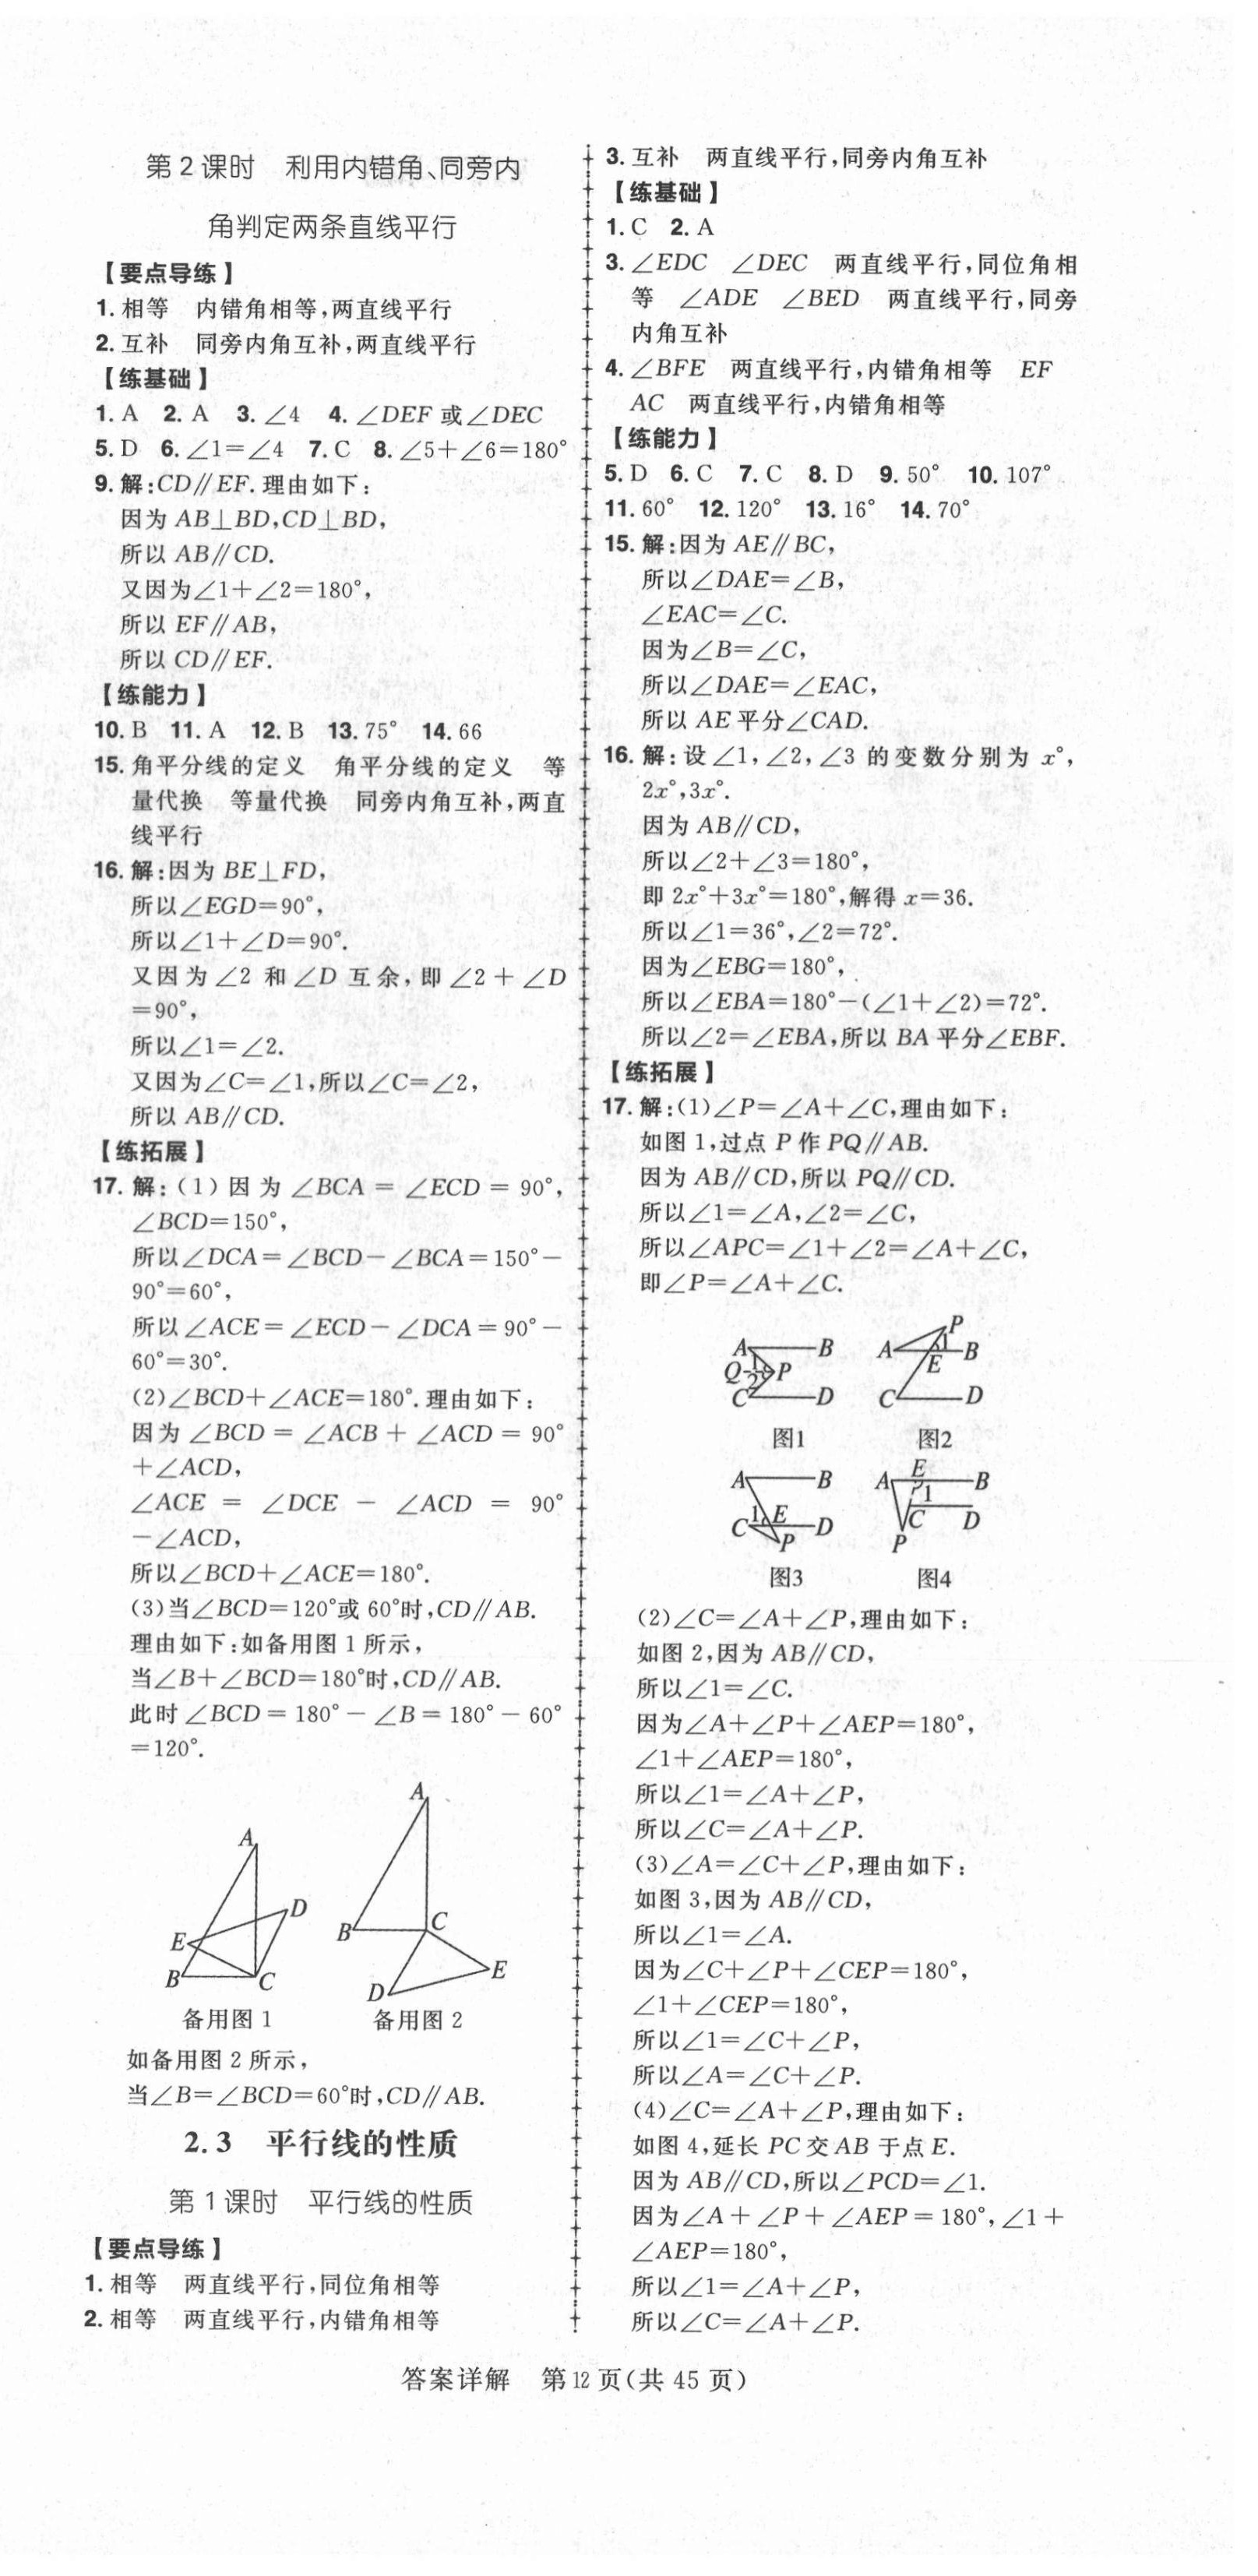 第2课时　利用内错角、同旁内
角判定两条直线平行
【要点导练】
1.相等　内错角相等,两直线平行
2.互补　同旁内角互补,两直线平行
【练基础】
1. A　2. A　3. ∠4　4. ∠DEF或∠DEC
5. D　6. ∠1=∠4　7. C　8. ∠5+∠6=180°
9.解:CD∥EF.理由如下:
因为AB⊥BD,CD⊥BD,
所以AB∥CD.
又因为∠1+∠2=180°,
所以EF∥AB,
所以CD∥EF.
【练能力】
10. B　11. A　12. B　13. 75°　14. 66
15.角平分线的定义　角平分线的定义　等
量代换　等量代换　同旁内角互补,两直
线平行
16.解:因为BE⊥FD,
所以∠EGD=90°,
所以∠1+∠D=90°.
又因为∠2和∠D互余,即∠2+∠D
=90°,
所以∠1=∠2.
又因为∠C=∠1,所以∠C=∠2,
所以AB∥CD.
【练拓展】
17.解:(1)因为∠BCA=∠ECD=90°,
∠BCD=150°,
所以∠DCA=∠BCD-∠BCA=150°-
90°=60°,
所以∠ACE=∠ECD-∠DCA=90°-
60°=30°.
(2)∠BCD+∠ACE=180°.理由如下:
因为∠BCD=∠ACB+∠ACD=90°
+∠ACD,
∠ACE=∠DCE-∠ACD=90°
-∠ACD,
所以∠BCD+∠ACE=180°.
(3)当∠BCD=120°或60°时,CD∥AB.
理由如下:如备用图1所示,
当∠B+∠BCD=180°时,CD∥AB.
此时∠BCD=180°-∠B=180°-60°
=120°.
A
E
D
B
C
备用图1
A
B
C
D
E
备用图2
如备用图2所示,
当∠B=∠BCD=60°时,CD∥AB.
2.3　平行线的性质
第1课时　平行线的性质
【要点导练】
1.相等　两直线平行,同位角相等
2.相等　两直线平行,内错角相等
3.互补　两直线平行,同旁内角互补
【练基础】
1. C　2. A
3. ∠EDC　∠DEC　两直线平行,同位角相
等　∠ADE　∠BED　两直线平行,同旁
内角互补
4. ∠BFE　两直线平行,内错角相等　EF
AC　两直线平行,内错角相等
【练能力】
5. D　6. C　7. C　8. D　9. 50°　10. 107°
11. 60°　12. 120°　13. 16°　14. 70°
15.解:因为AE∥BC,
所以∠DAE=∠B,
∠EAC=∠C.
因为∠B=∠C,
所以∠DAE=∠EAC,
所以AE平分∠CAD.
16.解:设∠1,∠2,∠3的变数分别为x°,
2x°,3x°.
因为AB∥CD,
所以∠2+∠3=180°,
即2x°+3x°=180°,解得x=36.
所以∠1=36°,∠2=72°.
因为∠EBG=180°,
所以∠EBA=180°-(∠1+∠2)=72°.
所以∠2=∠EBA,所以BA平分∠EBF.
【练拓展】
17.解:(1)∠P=∠A+∠C,理由如下:
如图1,过点P作PQ∥AB.
因为AB∥CD,所以PQ∥CD.
所以∠1=∠A,∠2=∠C,
所以∠APC=∠1+∠2=∠A+∠C,
即∠P=∠A+∠C.
A B
Q 1 P
2
C D
图1
P
A 1 B
E
C D
图2
A B
1 E
C D
P
图3
E
A B
1
C D
P
图4
(2)∠C=∠A+∠P,理由如下:
如图2,因为AB∥CD,
所以∠1=∠C.
因为∠A+∠P+∠AEP=180°,
∠1+∠AEP=180°,
所以∠1=∠A+∠P,
所以∠C=∠A+∠P.
(3)∠A=∠C+∠P,理由如下:
如图3,因为AB∥CD,
所以∠1=∠A.
因为∠C+∠P+∠CEP=180°,
∠1+∠CEP=180°,
所以∠1=∠C+∠P,
所以∠A=∠C+∠P.
(4)∠C=∠A+∠P,理由如下:
如图4,延长PC交AB于点E.
因为AB∥CD,所以∠PCD=∠1.
因为∠A+∠P+∠AEP=180°,∠1+
∠AEP=180°,
所以∠1=∠A+∠P,
所以∠C=∠A+∠P.
答案详解　第12页(共45页)